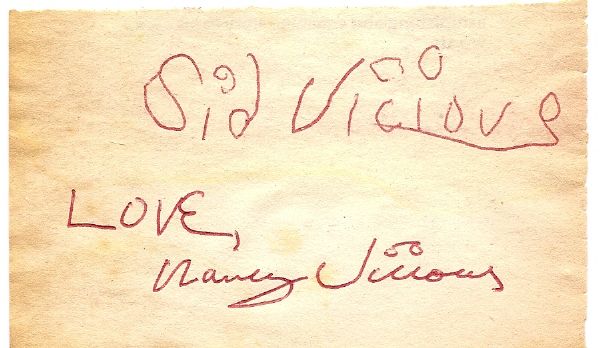 Sid Vicious
LOVE,
Nancy Vicious